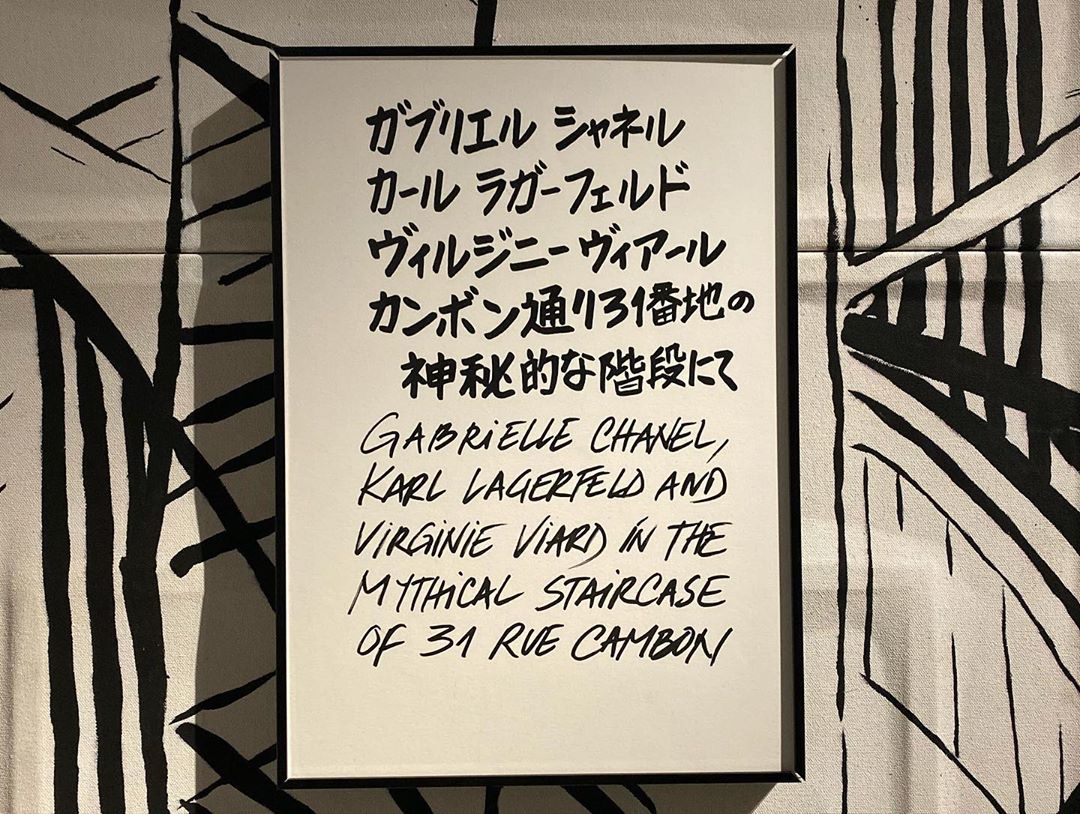 ガブリエル シャネル
カール ラガーフェルド
ヴィルジニー ヴィアール
カンボン通り31番地の
神秘的な階段にて
GABRiELLE CHANEL,
KARL LAGERFELD AND
ViRGiNiE ViARD iN THE
MYTHiCAL STAiRCASE
OF 31 RUE CAMBON